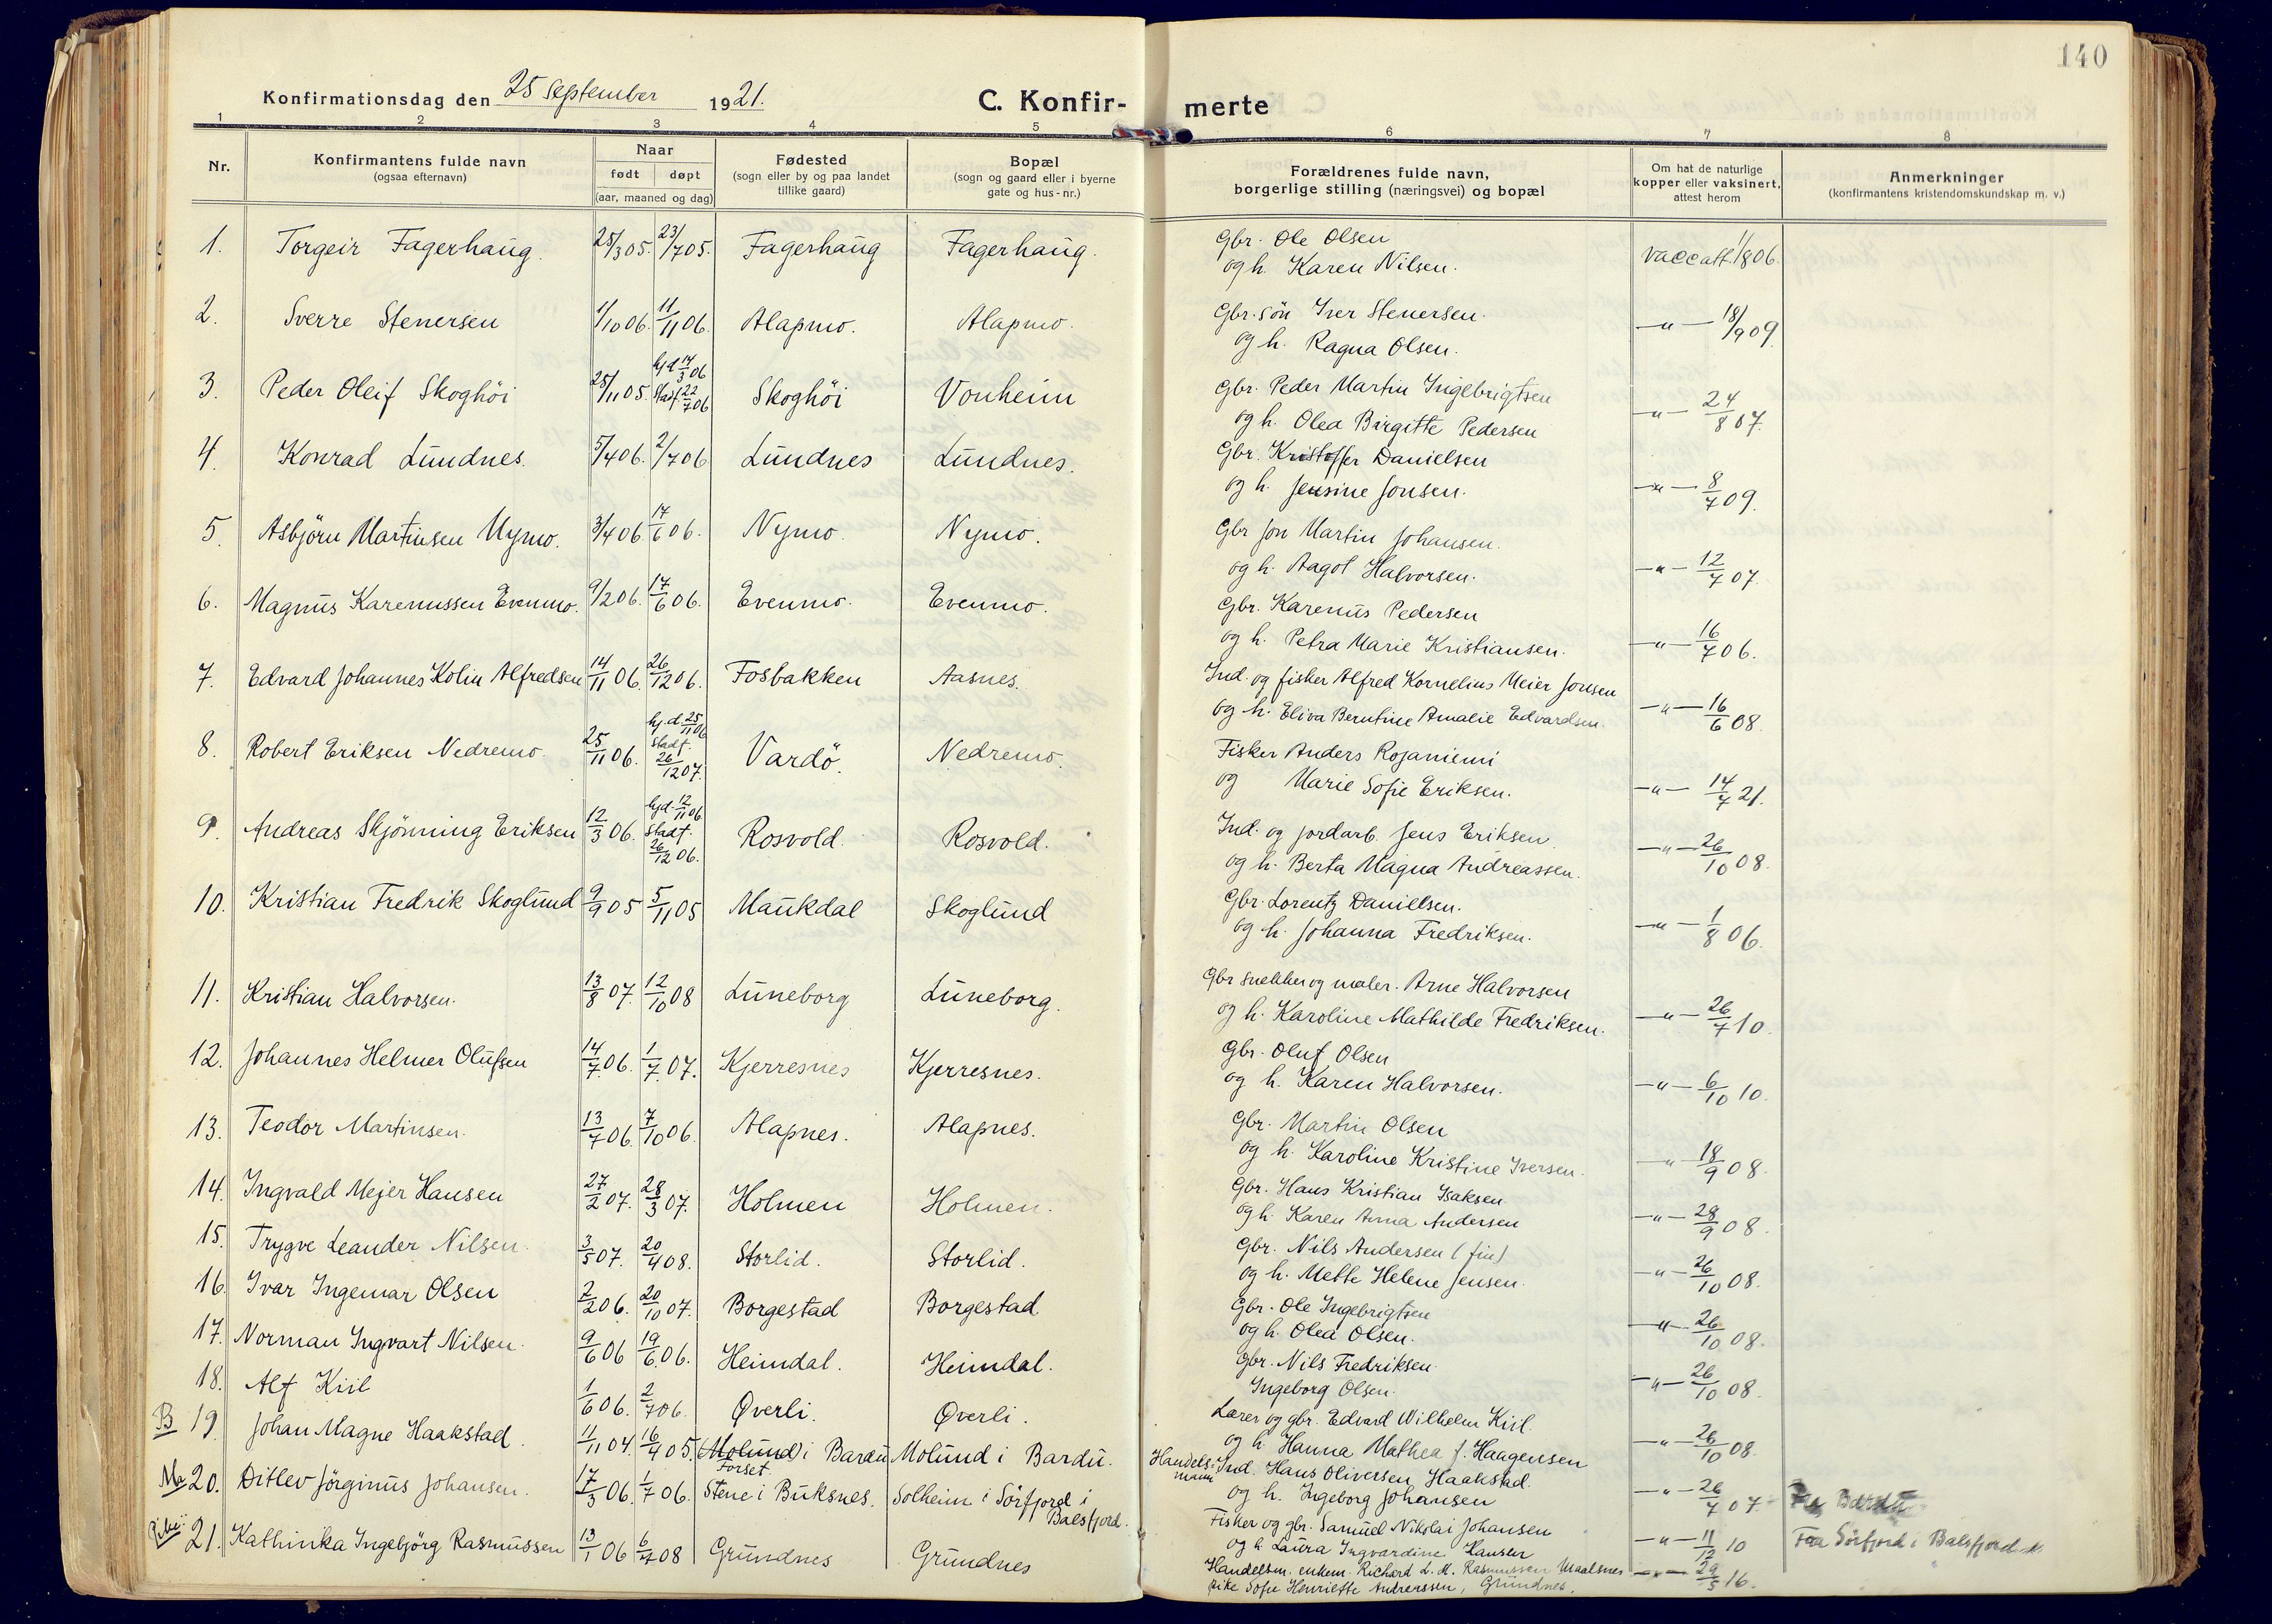 140
Konfirmationsdag den 25 September 1921.
C. Konfir-merte
1 2 3 4 5 6 7 8
Nr.
Konfirmantens fulde navn
(ogsaa efternavn)
Naar
født døpt
(aar, maaned og dag)
Fødested
(sogn eller by og paa landet
tillike gaard)
Bopæl
(sogn og gaard eller i byerne
gate og hus-nr.)
Forældrenes fulde navn,
borgerlige stilling (næringsvei) og bopæl
Om hat de naturlige
kopper eller vaksinert,
attest herom
Anmerkninger
(konfirmantens kristendomskundskap m. v.)
1. Torgeir Fagerhaug. 25/3 05. 23/7 05. Fagerhaug Fagerhaug.
Gbr. Ole Olsen
og h. Karen Nilsen. vacc att. 1/8 06.
2. Sverre Stenersen 1/10 06. 11/11 06. Alapmo. Alapmo.
Gbr. sön Iver Stenersen.
og h. Ragna Olsen. —"— 18/9 09.
3. Peder Oleif Skoghöi 25/11 05. hjd 14/3 06 Stadf. 22/7 06 Skoghöi Vonheim
Gbr. Peder Martin Ingebrigtsen
og h. Olea Birgitte Pedersen —"— 24/8 07.
4. Konrad Lundnes. 5/4 06. 2/7 06 Lundnes Lundnes.
Gbr. Kristoffer Danielsen
og h. Jensine Jonsen. —"— 8/7 09.
5. Asbjörn Martinsen Nymo. 3/4 06. 17/6 06. Nymo. Nymo.
Gbr Jon Martin Johansen.
og h. Aagot Halvorsen. —"— 12/7 07.
6. Magnus Karenussen Evenmo. 9/2 06. 17/6 06. Evenmo. Evenmo.
Gbr. Karenus Pedersen
og h. Petra Marie Kristiansen. —"— 16/7 06.
7. Edvard Johannes Kolin Alfredsen 14/11 06. 26/12 06. Fosbakken Aasnes.
Ind. og fisker Alfred Kornelius Meier Jonsen
og h. Eliva Berntine Amalie Edvardsen. —"— 16/6 08.
8. Robert Eriksen Nedremo. 25/11 06. hj.d. 25/11 06 Stadf. 26/12 07. Vardö. Nedremo.
Fisker Anders Rojaniemi
og Marie Sofie Eriksen. —"— 14/7 21.
9. Andreas Skjönning Eriksen 12/3 06. hjd. 12/11 06. Stadf. 26/12 06. Rosvold. Rosvold.
Ind. og jordarb. Jens Eriksen
og h. Berta Magna Andreassen. —"— 26/10 08.
10. Kristian Fredrik Skoglund 9/9 05 5/11 05 Maukdal Skoglund
Gbr. Lorentz Daniellsen.
og h. Johanna Fredriksen. —"— 1/8 06.
11. Kristian Halvorsen. 13/8 07. 12/10 08 Luneborg Luneborg.
Gbr snekker og maler. Arne Halvorsen
og h. Karoline Mathilde Fredriksen. —"— 26/7 10.
12. Johannes Helmer Olufsen 14/7 06. 1/7 07. Kjerresnes Kjerresnes.
Gbr. Oluf Olsen
og h. Karen Halvorsen. —"— 6/10 10.
13. Teodor Martinsen. 13/7 06. 7/10 06. Alapnes. Alapnes.
Gbr. Martin Olsen
og h. Karoline Kristine Iversen. —"— 18/9 08.
14. Ingvald Mejer Hansen 27/2 07. 28/3 07. Holmen Holmen.
Gbr. Hans Kristian Isaksen
og h. Karen Anna Andersen —"— 28/9 08.
15. Trygve Leander Nilsen. 3/5 07. 20/4 08. Storlid. Storlid.
Gbr. Nils Andersen (fin)
og h. Mette Helene Jensen. —"— 26/10 08.
16. Ivar Ingemar Olsen 2/2 06. 20/10 07. Borgestad Borgestad
Gbr. Ole Ingebrigtsen
og h. Olea Olsen. —"— 26/10 08.
17. Norman Ingvart Nilsen. 9/6 06 19/6 06. Heimdal. Heimdal.
Gbr. Nils Fredriksen.
Ingeborg Olsen. —"— 26/10 08.
18. Alf Kiil 1/6 06. 2/7 06. Øverli. Øverli.
Lærer og gbr. Edvard Wilhelm Kiil.
og h. Hanna Mathea f. Haagensen —"— 26/10 08.
B 19. Johan Magne Haakstad. 11/11 04. 16/4 05. (Molund) i Bardu Forset. Molund i Bardu.
Handels-mann Ind. Hans Oliversen Haakstad.
og h. Ingeborg Johansen —"— 26/7 07 Fra Bardu
Ma 20. Ditlev Jörginus Johansen. 17/3 06. 1/7 06. Stene i Buksnes. Solheim i Sörfjord i Balsfjord.
Fisker og gbr. Samuel Nikolai Johansen
og h Laura Ingvardine Hansen —"— 11/12 10 Fra Sörfjord i Balsfjord
21. Kathinka Ingebjörg Rasmussen 13/1 06 6/7 08 Grundnes Grundnes
Handelsm. enkem. Richard L. M. Rasmussen Maalsnes
pike Sofie Henriette Andreassen, Grundnes. —"— 29/5 16.